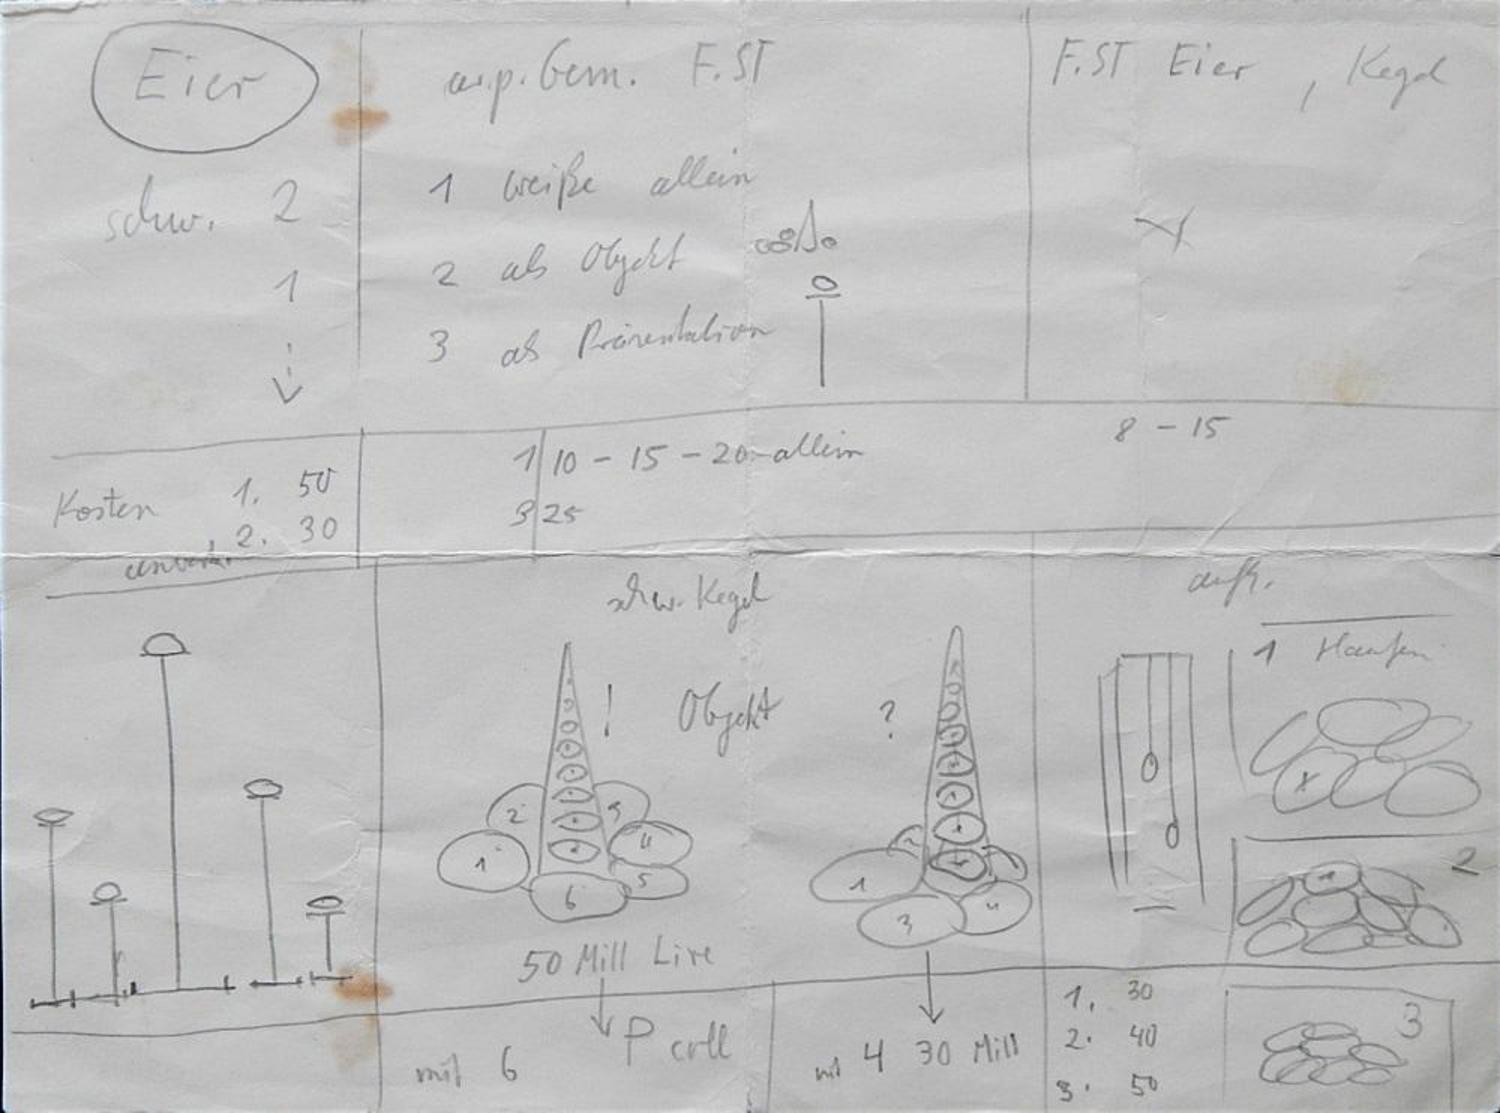 Eier
F.ST
F.ST Eier , Kegel
schw. 2
1
1 weiße allein
2 als Objekt
3 als Präsentation
Kosten 1. 50
2. 30
1 10 - 15 - 20 - allein
3 25
8 - 15
schw. Kegel
! Objekt
?
2 3
1 4
5
6
50 Mill Lire
mit 6
P coll
1
3 4
mit 4 30 Mill
aufh.
1 Haufen
x
2
1. 30
2. 40
3. 50
3